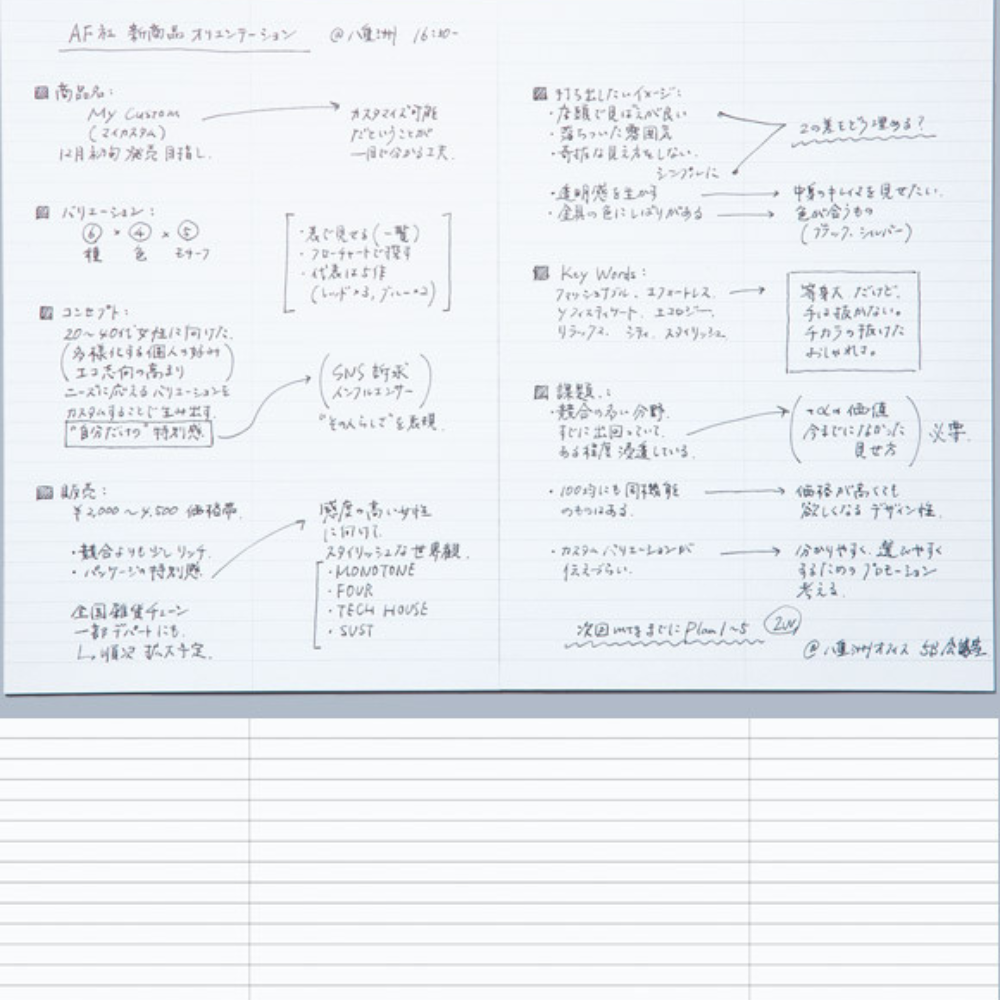 AF社 新商品 オリエンテーション @八重洲 16:30-
商品名:
My Custom
(マイカスタム)
12月初旬発売目指し.
カスタマイズ可能
だということが
一目で分かる工夫.
バリエーション:
⑥ × ④ × ⑤
種 色 モチーフ
・表で見せる(一覧)
・フローチャートで探す
・代表は5作
(レッド×3, ブルー×2)
コンセプト:
20〜40代女性に向けた.
(多様化する個人の好み
エコ志向の高まり)
ニーズに応えるバリエーションを
カスタムすることで生み出す.
"自分だけの"特別感.
(SNS訴求
インフルエンサー)
"その人らしさ"を表現.
販売:
¥2,000〜4,500 価格帯.
・競合よりも少しリッチ.
・パッケージの特別感.
全国雑貨チェーン
一部デパートにも.
順次拡大予定.
感度の高い女性
に向けて
スタイリッシュな世界観.
・MONOTONE
・FOUR
・TECH HOUSE
・SUST
打ち出したいイメージ:
・店頭で見ばえが良い
・落ちついた雰囲気
・奇抜な見え方をしない.
シンプルに
2の差をどう埋める?
・透明感を生かす
中身のキレイさを見せたい.
・金具の色にしばりがある
色が合うもの
(ブラック、シルバー)
Key Words:
ファッショナブル、エフォートレス.
ソフィスティケート、エコロジー、
リラックス、シティ、スタイリッシュ.
等身大だけど、
手は抜かない。
チカラの抜けた
おしゃれさ。
課題.:
・競合の多い分野.
すでに出回っていて.
ある程度浸透している.
(+αの価値
今までになかった
見せ方) 必要.
・100均にも同機能
のものはある.
価格が高くても
欲しくなるデザイン性.
・カスタムバリエーションが
伝えづらい.
分かりやすく、選びやすく
するためのプロモーション
考える.
次回mtgまでにPlan1〜5
@八重洲オフィス 5B会議室